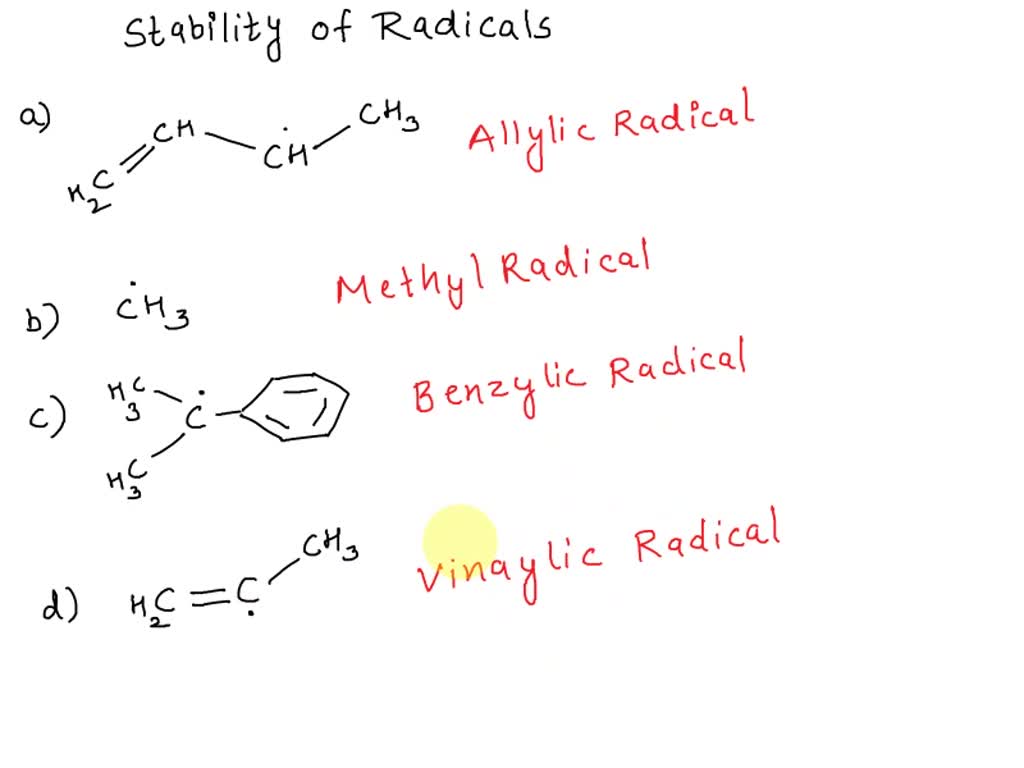 Stability of Radicals
a) H2C=CH-ĊH-CH3 Allylic Radical
b) ĊH3 Methyl Radical
c) H3C Ċ H3C Benzylic Radical
d) H2C=Ċ-CH3 Vinaylic Radical